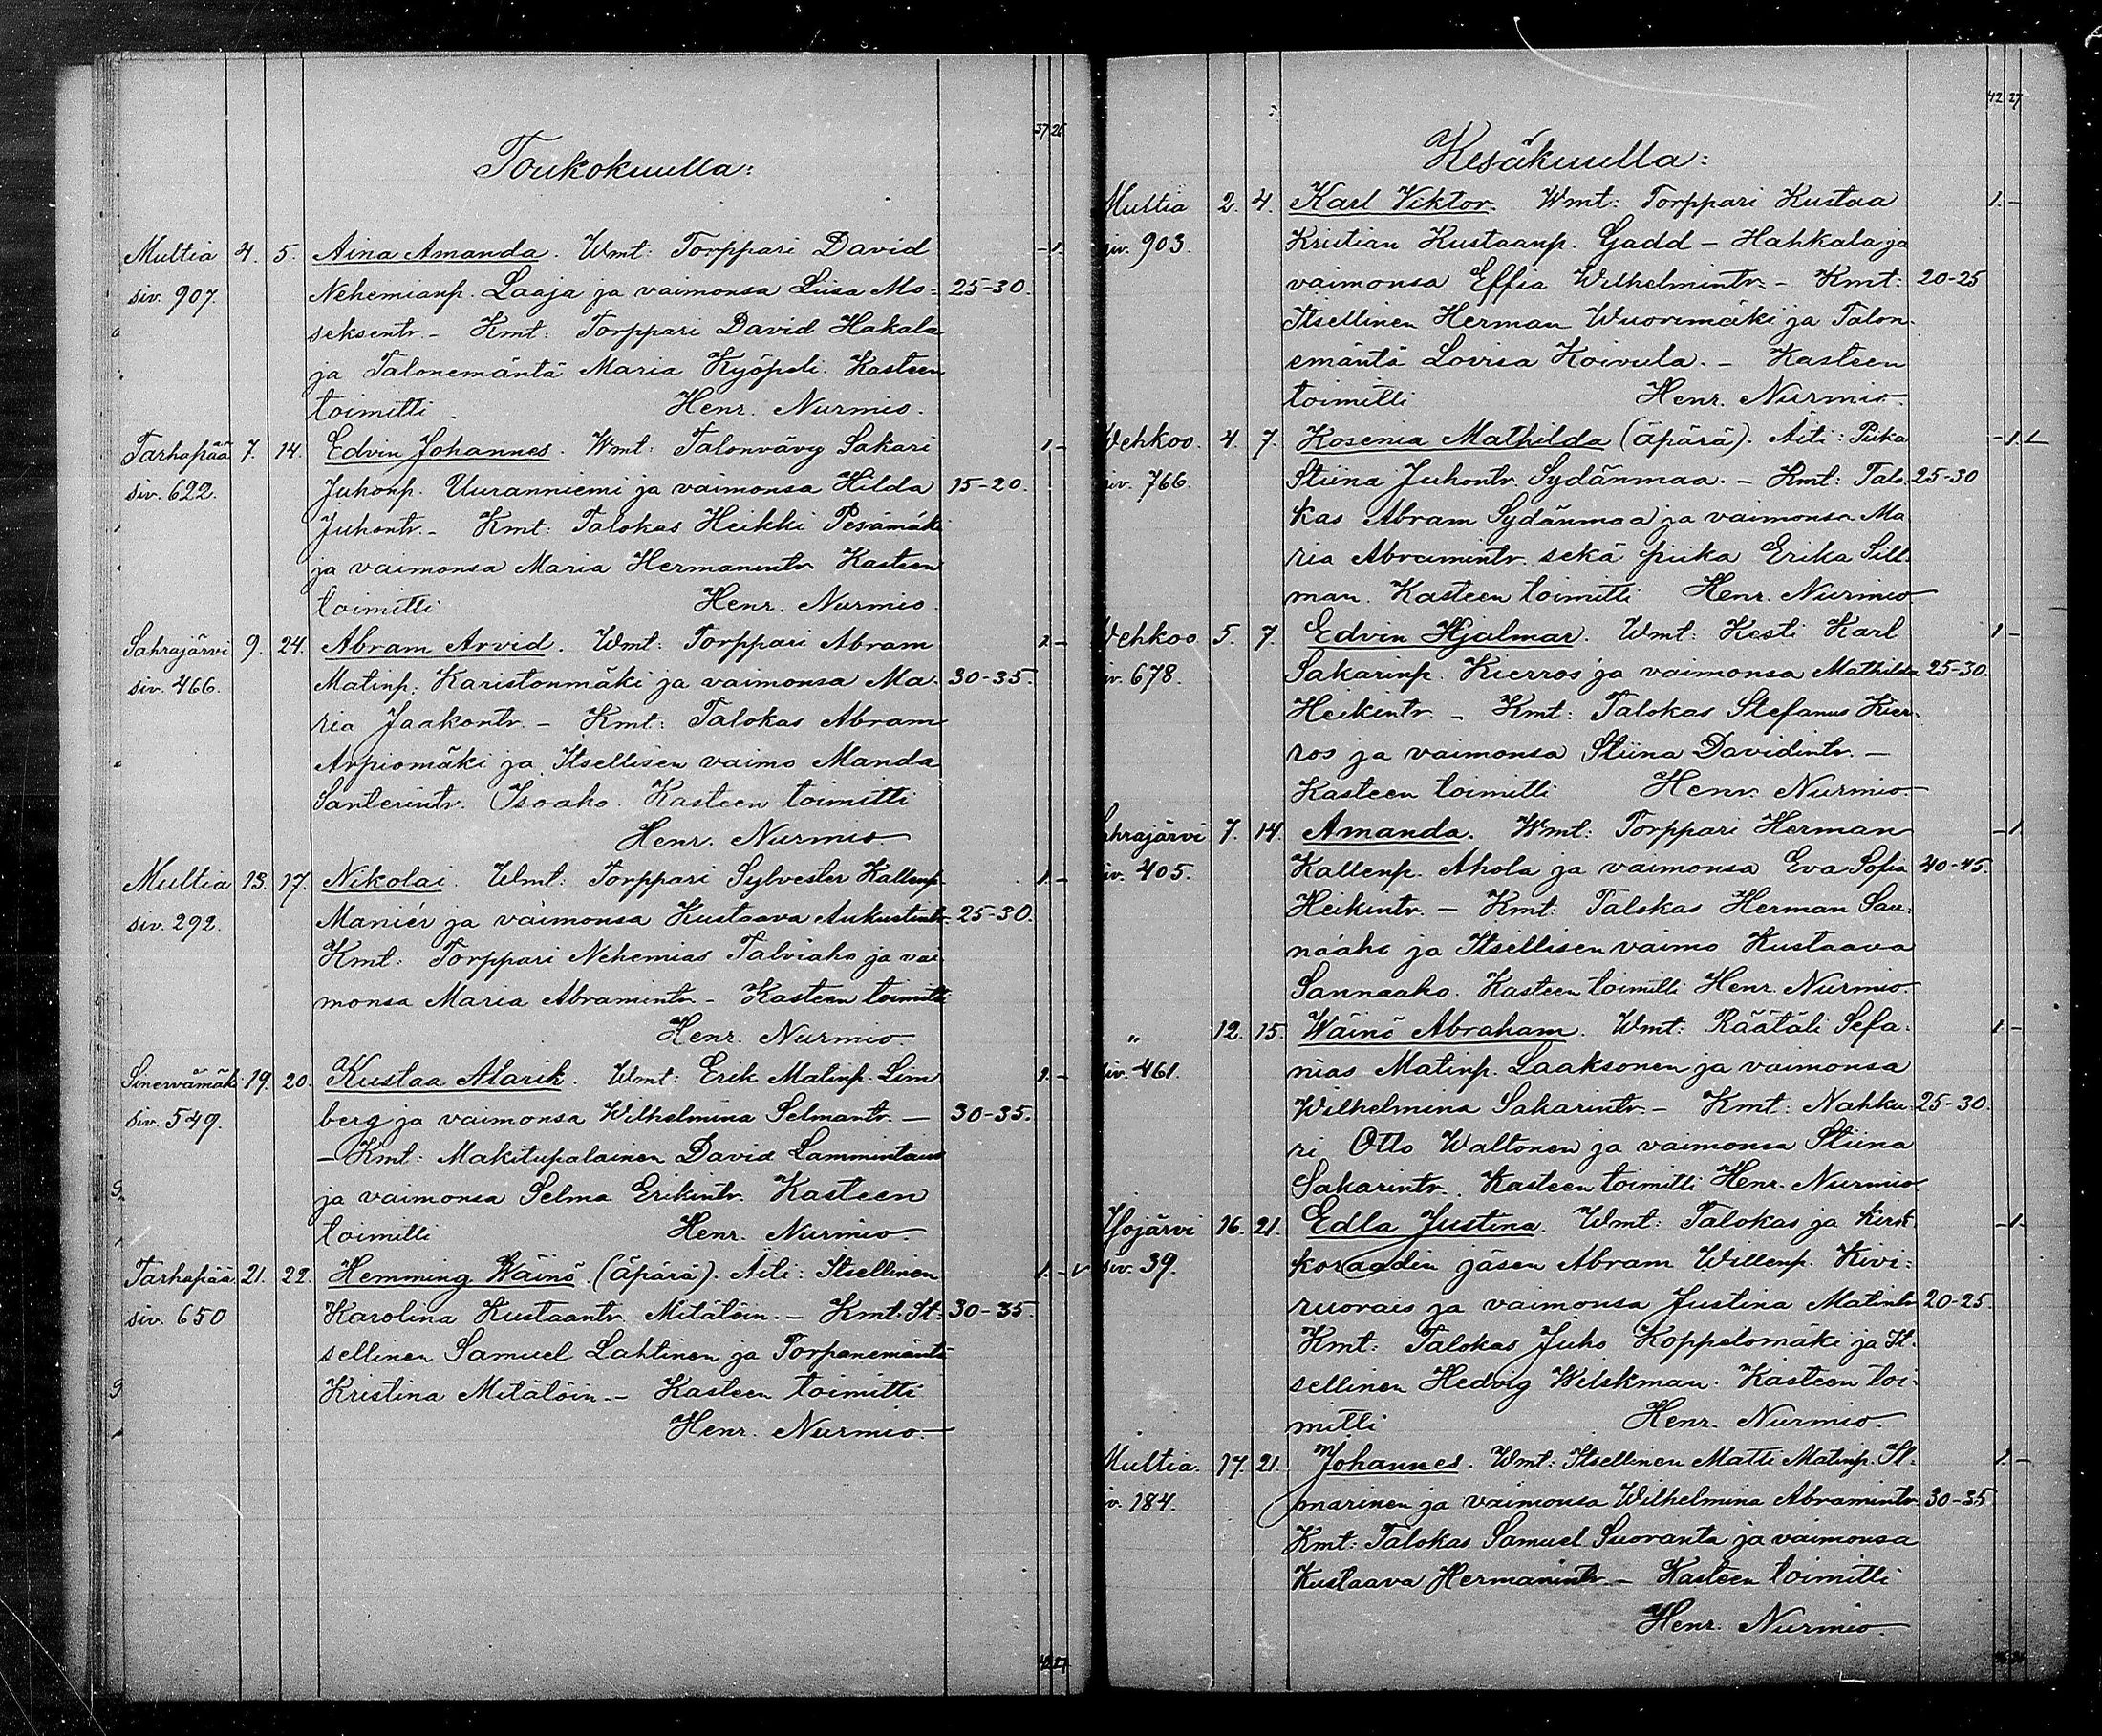 37 26
Toukokuulla:
Multia 4. 5. Aina Amanda. Wmt: Torppari David - 1.
siv. 907. Nehemianp. Laaja ja vaimonsa Liisa Mo- 25-30.
seksentr. - Kmt: Torppari David Hakala
ja Talonemäntä Maria Kyöpeli. Kasteen
toimitti Henr. Nurmio.
Tarhapää 7. 14. Edvin Johannes. Wmt: Talonvävy Sakari 1 -
siv. 622. Juhonp. Uuranniemi ja vaimonsa Hilda 15-20.
Juhontr. - Kmt: Talokas Heikki Pesämäki
ja vaimonsa Maria Hermanintr. Kasteen
toimitti Henr. Nurmio.
Sahrajärvi 9. 24. Abram Arvid. Wmt: Torppari Abram 1 -
siv. 466. Matinp. Karistonmäki ja vaimonsa Ma- 30-35.
ria Jaakontr. - Kmt: Talokas Abram
Arpiomäki ja Itsellisen vaimo Manda
Santerintr. Isoaho. Kasteen toimitti
Henr. Nurmio.
Multia 13. 17. Nikolai. Wmt: Torppari Sylvester Kallenp. 1 -
siv. 292. Maniér ja vaimonsa Kustaava Aukustintr. 25-30.
Kmt: Torppari Nehemias Talviaho ja vai-
monsa Maria Abramintr. - Kasteen toimitti
Henr. Nurmio.
Sinervämäki 19. 20. Kustaa Alarik. Wmt: Erik Matinp. Lim 1. -
siv. 549. berg ja vaimonsa Wilhelmina Selmantr. - 30-35.
- Kmt: Makitupalainen David Lammintaus
ja vaimonsa Selma Erikintr. Kasteen
toimitti Henr. Nurmio.
Tarhapää 21. 22. Hemming Wäinö. (äpärä). Äiti: Itsellinen 1. - v
siv. 650 Karolina Kustaantr. Mitätöin. - Kmt: It- 30-35.
sellinen Samuel Lahtinen ja Torpanemäntä
Kristina Mitätöin. - Kasteen toimitti
Henr. Nurmio.
42 27
42 27
Kesäkuulla:
Multia 2. 4. Karl Viktor. Wmt: Torppari Kustaa 1. -
siv. 903. Kristian Kustaanp. Gadd - Hahkala ja
vaimonsa Effia Wilhelmintr. - Kmt: 20-25
Itsellinen Herman Wuorimäki ja Talon-
emäntä Lovisa Koivula. - Kasteen
toimitti Henr. Nurmio.
Wehkoo. 4. 7. Kosenia Mathilda (äpärä). Äiti: Piika - 1. 1
siv. 766. Stiina Juhontr. Sydänmaa. - Kmt: Talo- 25-30
kas Abram Sydänmaa ja vaimonsa Ma
ria Abramintr. sekä piika Erika Sill-
man. Kasteen toimitti Henr. Nurmio
Wehkoo 5. 7. Edvin Hjalmar. Wmt: Kesti Karl 1 -
siv. 678. Sakarinp. Kierros ja vaimonsa Mathilda 25-30.
Heikintr. - Kmt: Talokas Stefanus Kier-
ros ja vaimonsa Stiina Davidintr. -
Kasteen toimitti Henr. Nurmio.
Sahrajärvi 7. 14. Amanda. Wmt: Torppari Herman - 1.
siv. 405. Kallenp. Ahola ja vaimonsa Eva Sofia 40-45.
Heikintr. - Kmt: Talokas Herman San-
naaho ja Itsellisen vaimo Kustaava
Sannaaho. Kasteen toimitti Henr. Nurmio.
" 12. 15. Wäinö Abraham. Wmt: Räätäli Sefa- 1. -
siv. 461. nias Matinp. Laaksonen ja vaimonsa
Wilhelmina Sakarintr. - Kmt: Nahku- 25-30.
ri Otto Waltonen ja vaimonsa Stiina
Sakarintr. Kasteen toimitti Henr. Nurmio
Isojärvi 16. 21. Edla Justina. Wmt: Talokas ja Kirk - 1 -
siv. 39. koraadin jäsen Abram Willenp. Kivi-
ruorais ja vaimonsa Justina Matintr. 20-25.
Kmt: Talokas Juho Koppelomäki ja It-
sellinen Hedvig Wilskman. Kasteen toi-
mitti Henr. Nurmio.
Multia. 17. 21. Johannes. Wmt: Itsellinen Matti Matinp. Il- 1. -
siv. 184. marinen ja vaimonsa Wilhelmina Abramintr. 30-35
Kmt: Talokas Samuel Suoranta ja vaimonsa
Kustaava Hermanintr. - Kasteen toimitti
Henr. Nurmio.